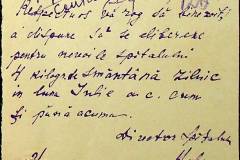 Respectuos vă rog să binevoiți
a dispune să se elibereze
pentru nevoile spitalului
4 kilograme smântână zilnic
în luna Iulie a.c. cum
și până acuma.
Director Spitalului